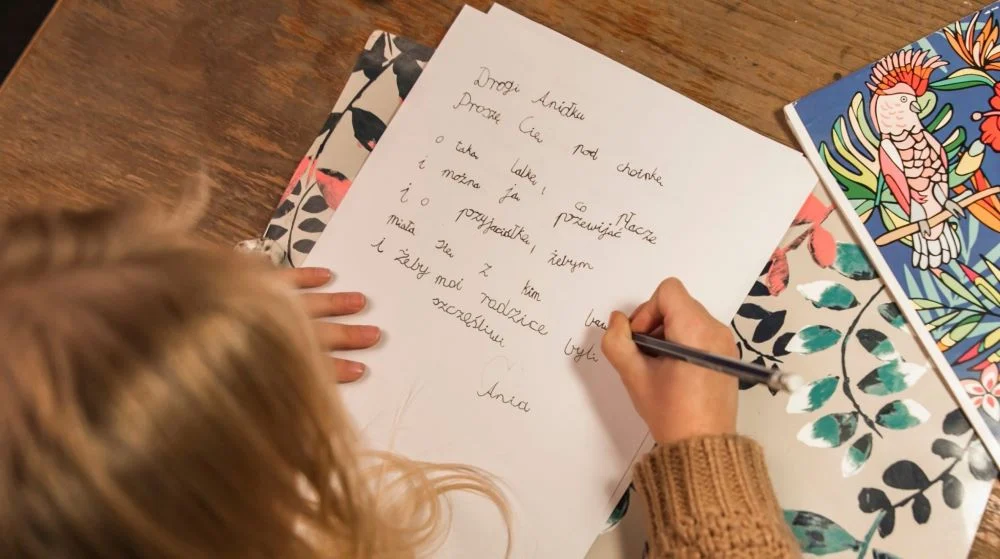 Drogi Aniołku
Proszę Cię pod choinkę
o taką lalkę, co płacze
i można ją przewijać
i o przyjaciółkę, żebym
miała się z kim
i żeby moi rodzice byli
szczęśliwi
Ania